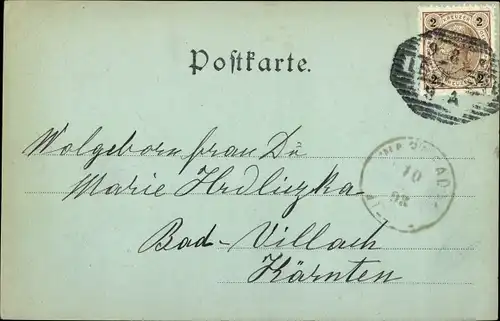 2 KREUZER 2
Postkarte.
Wolgeborn frau Dr
Marie Hrdliczka
Bad-Villach
Kärnten
10
98